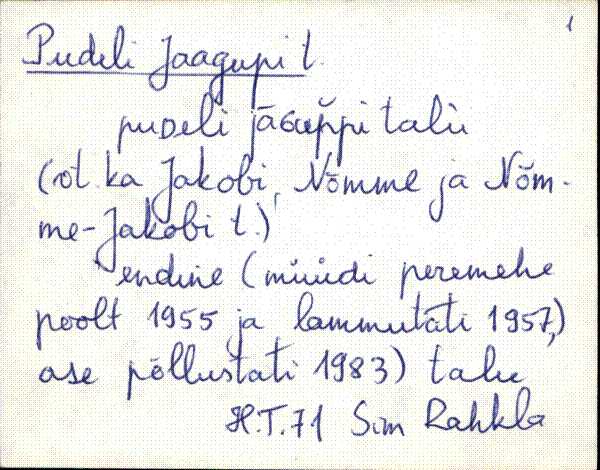 1
Pudeli Jaagupi t.
pudeli jāGup̆pi talu
(rtl. ka Jakobi, Nõmme ja Nõm-
me-Jakobi t.)
endine (müüdi peremehe
poolt 1955 ja lammutati 1957,)
ase põllustati 1983) talu
H.T.71 Sim Rahkla